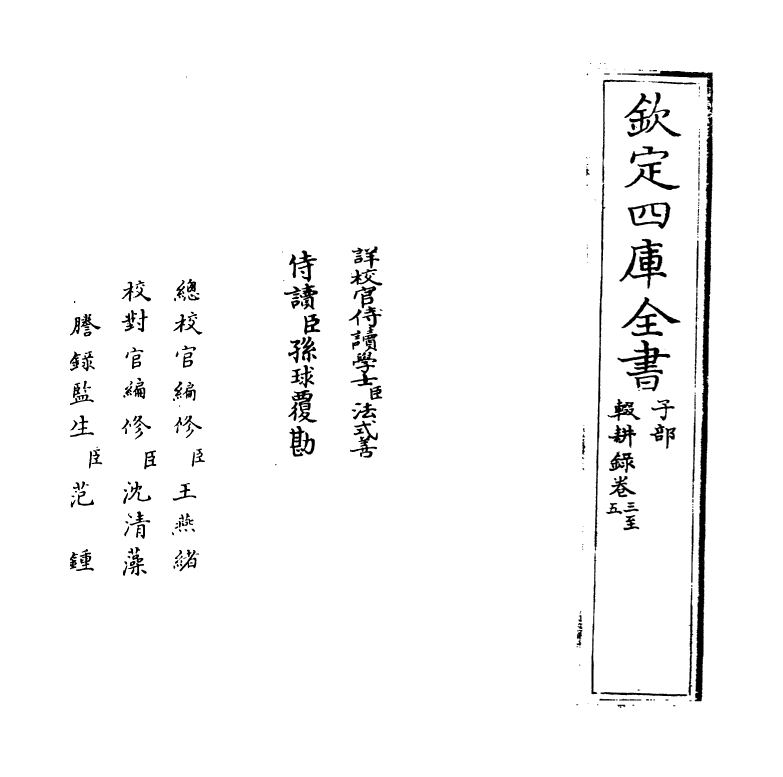 欽定四庫全書
子部
輟耕錄卷三至五
詳校官侍讀學士臣法式善
侍讀臣孫球覆勘
總校官編修臣王燕緒
校對官編修臣沈清藻
謄錄監生臣范鍾